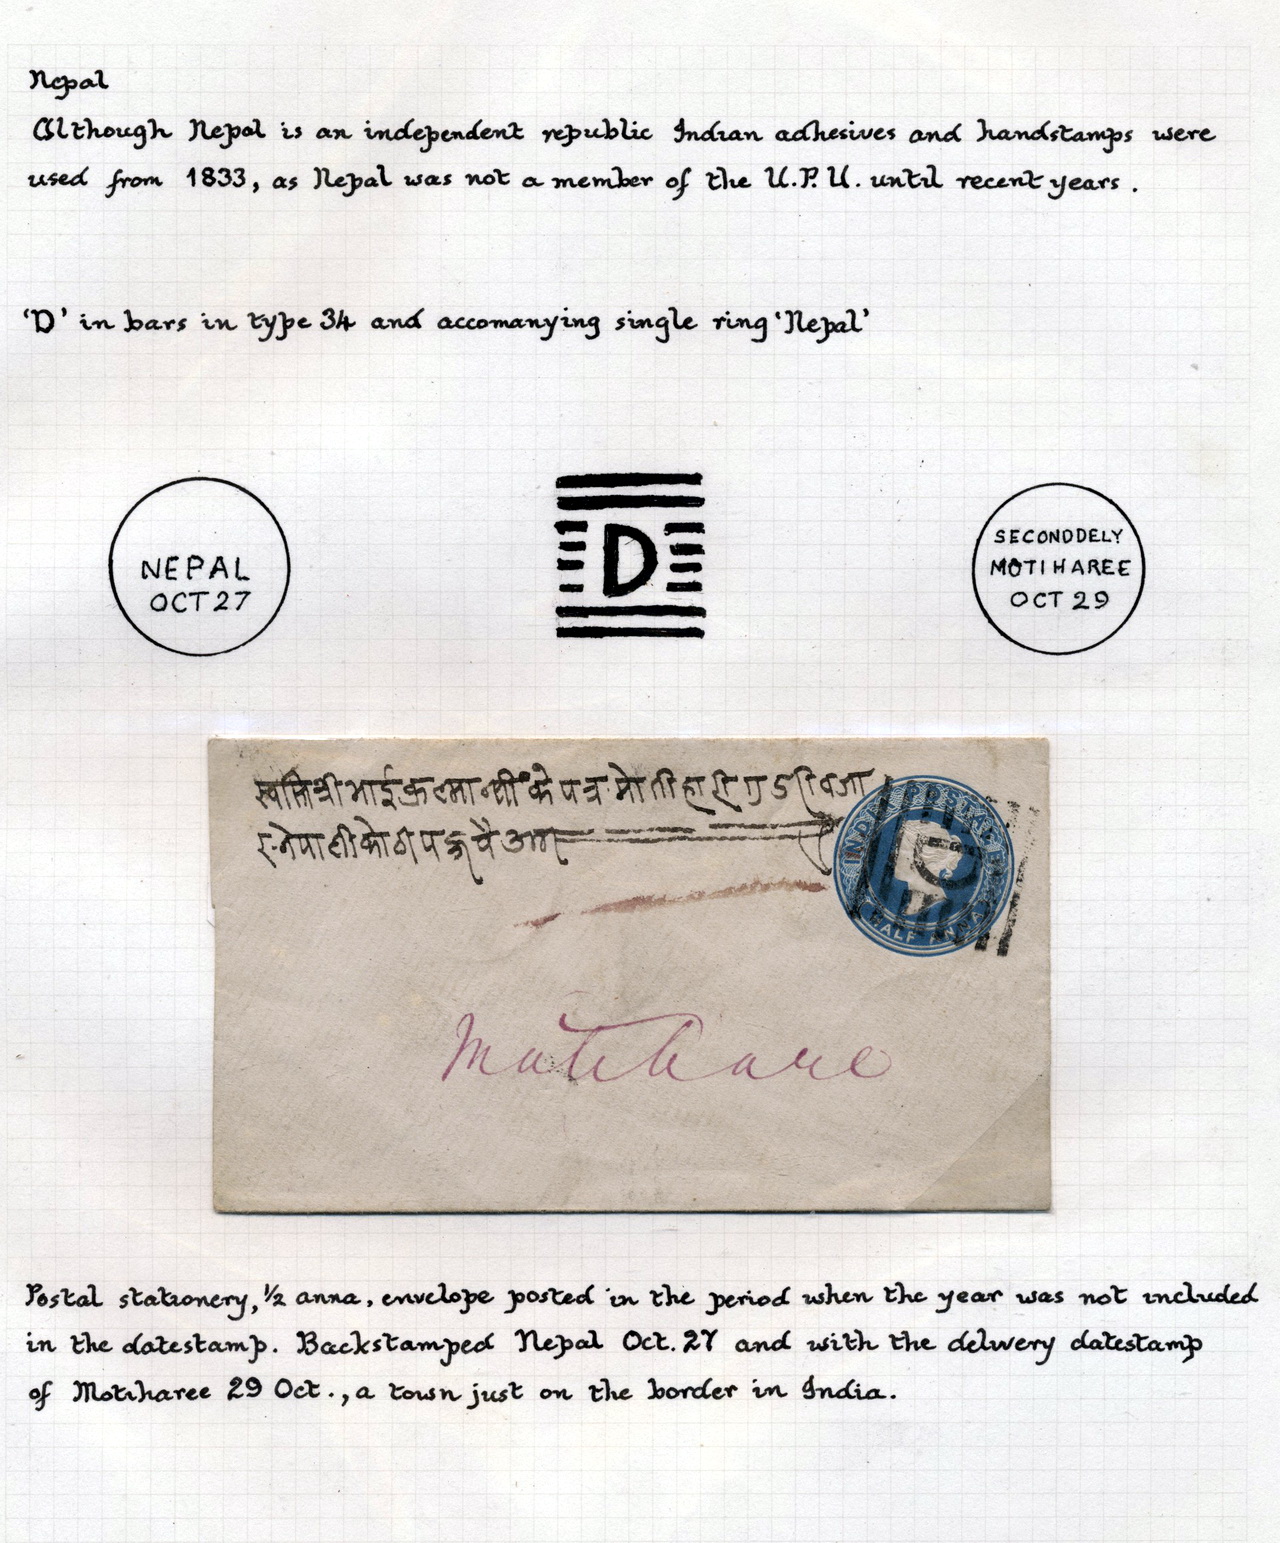 Nepal
Although Nepal is an independent republic Indian adhesives and handstamps were
used from 1833, as Nepal was not a member of the U.P.U. until recent years.
'D' in bars in type 34 and accomanying single ring 'Nepal'
NEPAL
OCT 27
D
SECONDDELY
MOTIHAREE
OCT 29
के पत्र मोतीहारी
नेपाली कोठी
INDIA POSTAGE
D
HALF ANNA
Motihare
Postal stationery, ½ anna, envelope posted in the period when the year was not included
in the datestamp. Backstamped Nepal Oct. 27 and with the delivery datestamp
of Motiharee 29 Oct., a town just on the border in India.